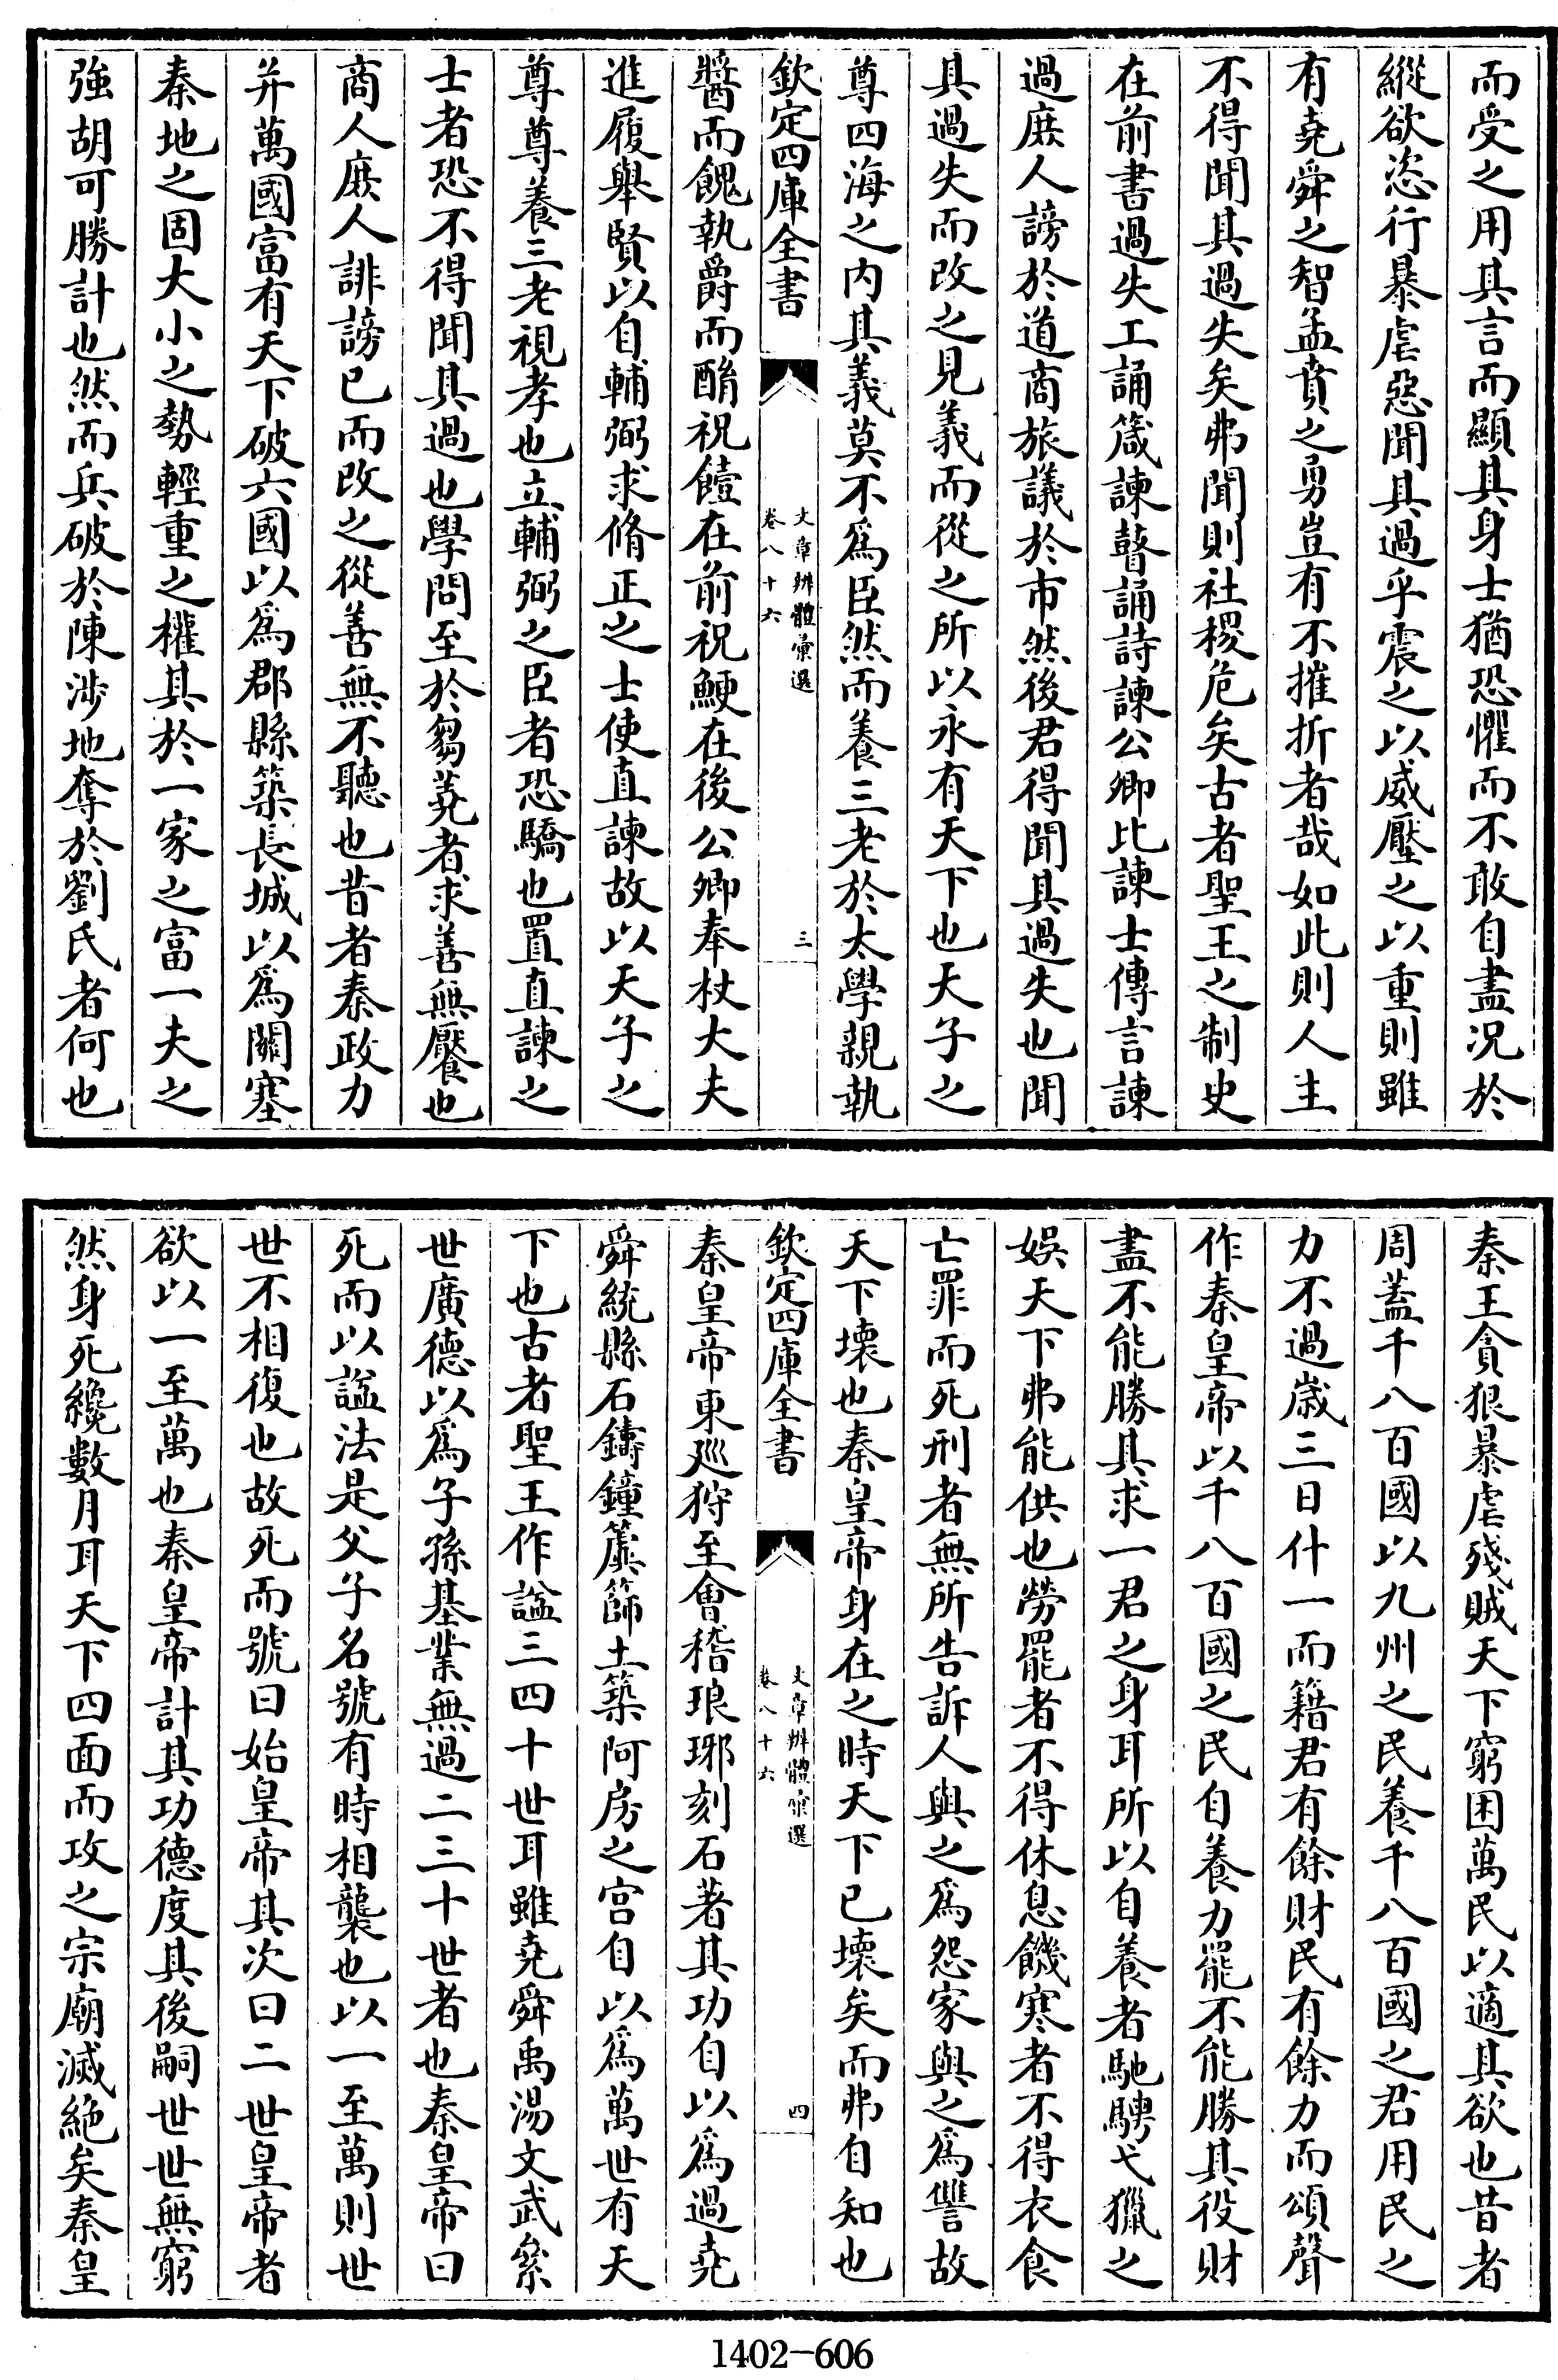 而受之用其言而顯其身士猶恐懼而不敢自盡况於
縱欲恣行暴虐惡聞其過乎震之以威壓之以重則雖
有堯舜之智孟賁之勇豈有不摧折者哉如此則人主
不得聞其過失矣弗聞則社稷危矣古者聖王之制史
在前書過失工誦箴諫瞽誦詩諫公卿比諫士傳言諫
過庶人謗於道商旅議於市然後君得聞其過失也聞
其過失而改之見義而從之所以永有天下也天子之
尊四海之内其義莫不爲臣然而養三老於太學親執
欽定四庫全書
文章辨體彙選
卷八十六
三
醬而餽執爵而酳祝饐在前祝鯁在後公卿奉杖大夫
進履舉賢以自輔弼求脩正之士使直諫故以天子之
尊尊養三老視孝也立輔弼之臣者恐驕也置直諫之
士者恐不得聞其過也學問至於芻蕘者求善無饜也
商人庶人誹謗已而改之從善無不聽也昔者秦政力
并萬國富有天下破六國以爲郡縣築長城以爲關塞
秦地之固大小之勢輕重之權其於一家之富一夫之
強胡可勝計也然而兵破於陳涉地奪於劉氏者何也
秦王貪狠暴虐殘賊天下窮困萬民以適其欲也昔者
周蓋千八百國以九州之民養千八百國之君用民之
力不過歲三日什一而籍君有餘財民有餘力而頌聲
作秦皇帝以千八百國之民自養力罷不能勝其役財
盡不能勝其求一君之身耳所以自養者馳騁弋獵之
娛天下弗能供也勞罷者不得休息饑寒者不得衣食
亡罪而死刑者無所告訴人與之爲怨家與之爲讐故
天下壞也秦皇帝身在之時天下已壞矣而弗自知也
欽定四庫全書
文章辨體彙選
卷八十六
四
秦皇帝東廵狩至會稽琅琊刻石著其功自以爲過堯
舜統縣石鑄鐘簴篩土築阿房之宫自以爲萬世有天
下也古者聖王作諡三四十世耳雖堯舜禹湯文武絫
世廣德以爲子孫基業無過二三十世者也秦皇帝曰
死而以諡法是父子名號有時相襲也以一至萬則世
世不相復也故死而號曰始皇帝其次曰二世皇帝者
欲以一至萬也秦皇帝計其功德度其後嗣世世無窮
然身死纔數月耳天下四面而攻之宗廟滅絶矣秦皇
1402-606